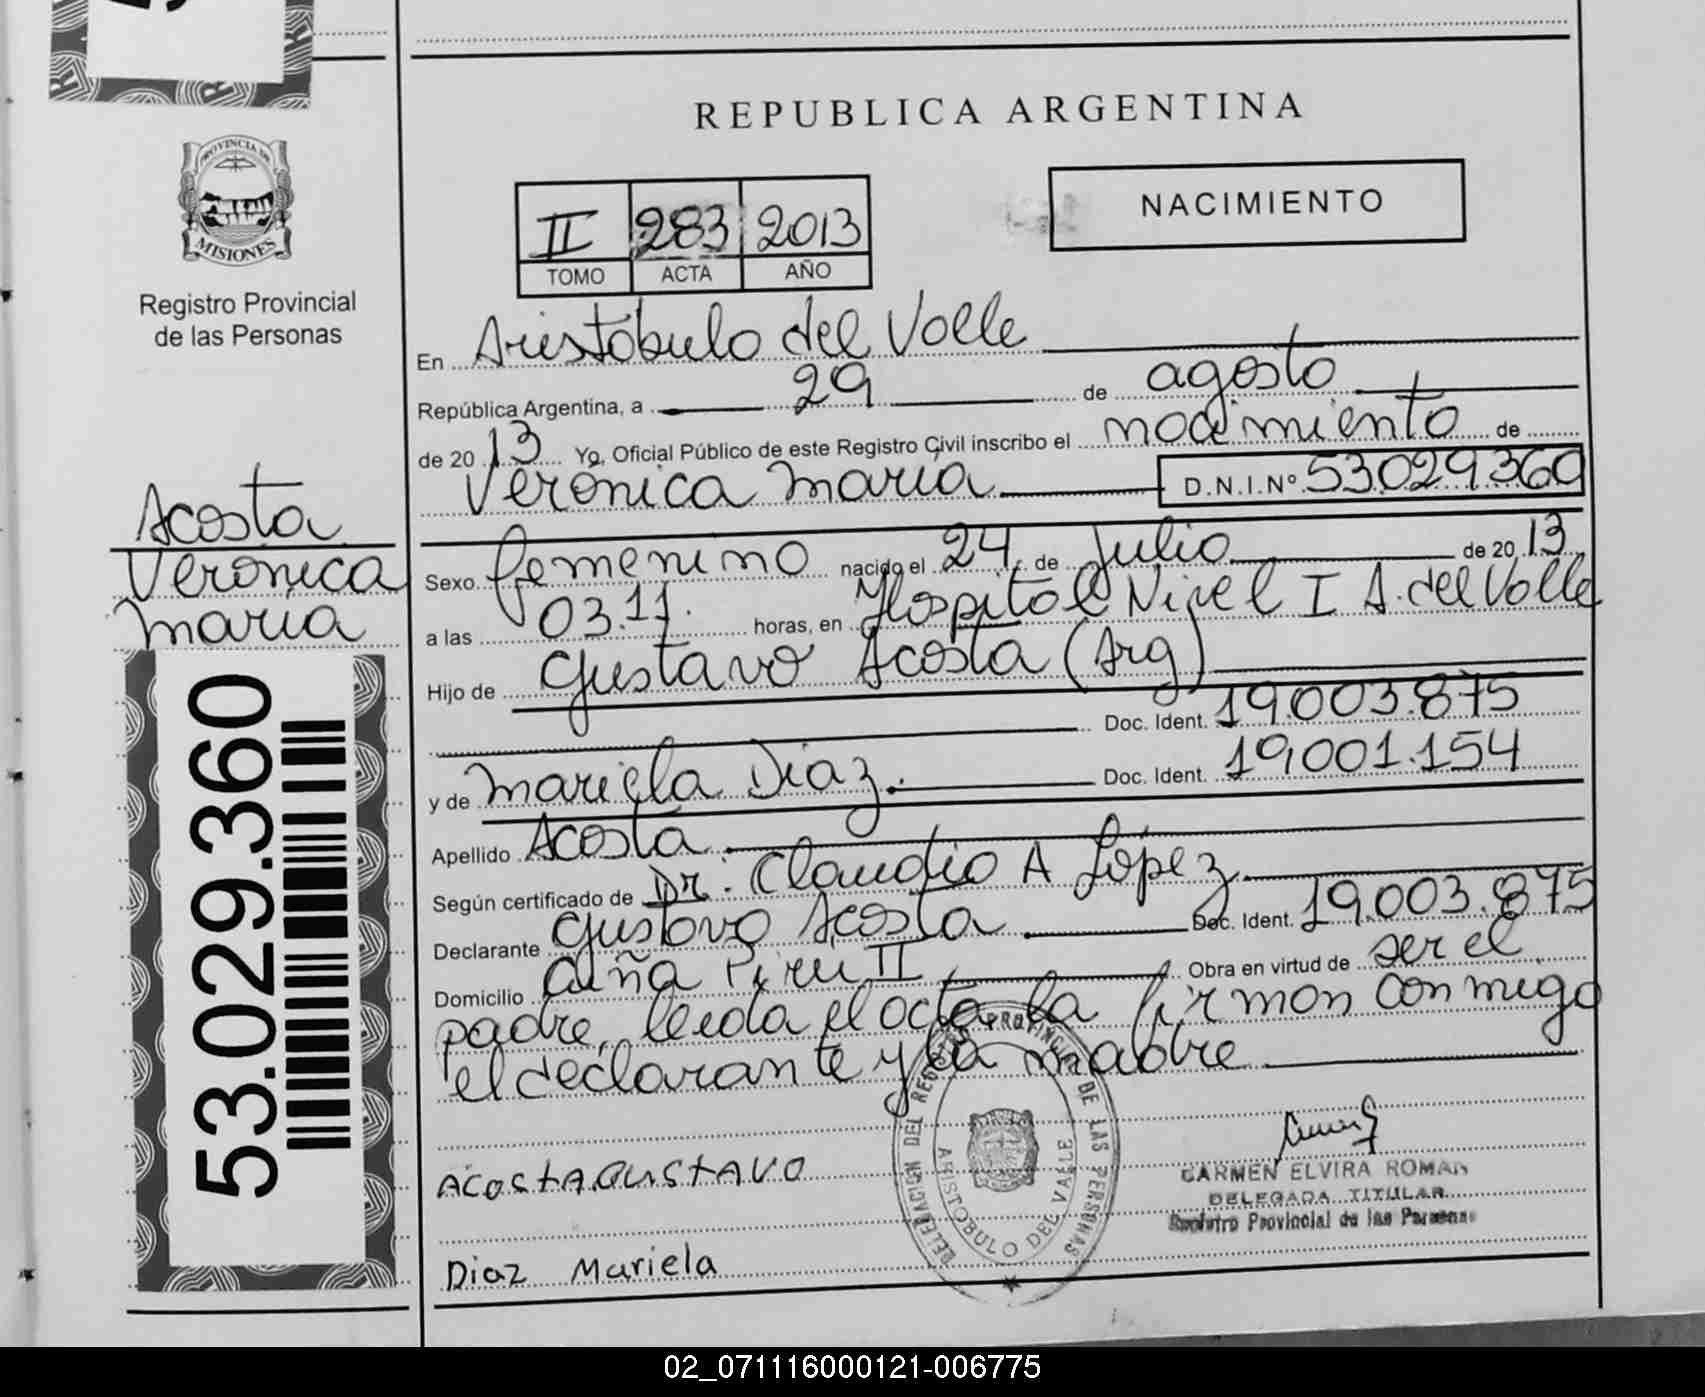 REPUBLICA ARGENTINA
PROVINCIA DE
MISIONES
Registro Provincial
de las Personas
II 283 2013
TOMO ACTA AÑO
NACIMIENTO
En Aristobulo del Valle
República Argentina, a 29 de agosto
de 2013 Yo, Oficial Público de este Registro Civil inscribo el nacimiento de
Verónica María D.N.I.Nº 53.029.360
Acosta
Verónica
María
53.029.360
Sexo femenino nacido el 24 de Julio de 2013
a las 03.11. horas, en Hospital Nivel I A. del Valle
Hijo de Gustavo Acosta (Arg)
Doc. Ident. 19.003.875
y de Mariela Diaz. Doc. Ident. 19.001.154
Apellido Acosta
Según certificado de Dr. Claudio A López
Declarante Gustavo Acosta Doc. Ident. 19.003.875
Domicilio Cuña Pirú II Obra en virtud de ser el
padre, leida el acta la firman conmigo
el declarante y la madre
DELEGACIÓN DEL REGISTRO PROVINCIAL DE LAS PERSONAS
ARISTOBULO DEL VALLE
ACOSTA GUSTAVO
CARMEN ELVIRA ROMAN
DELEGADA TITULAR
Registro Provincial de las Personas
Diaz Mariela
02_071116000121-006775